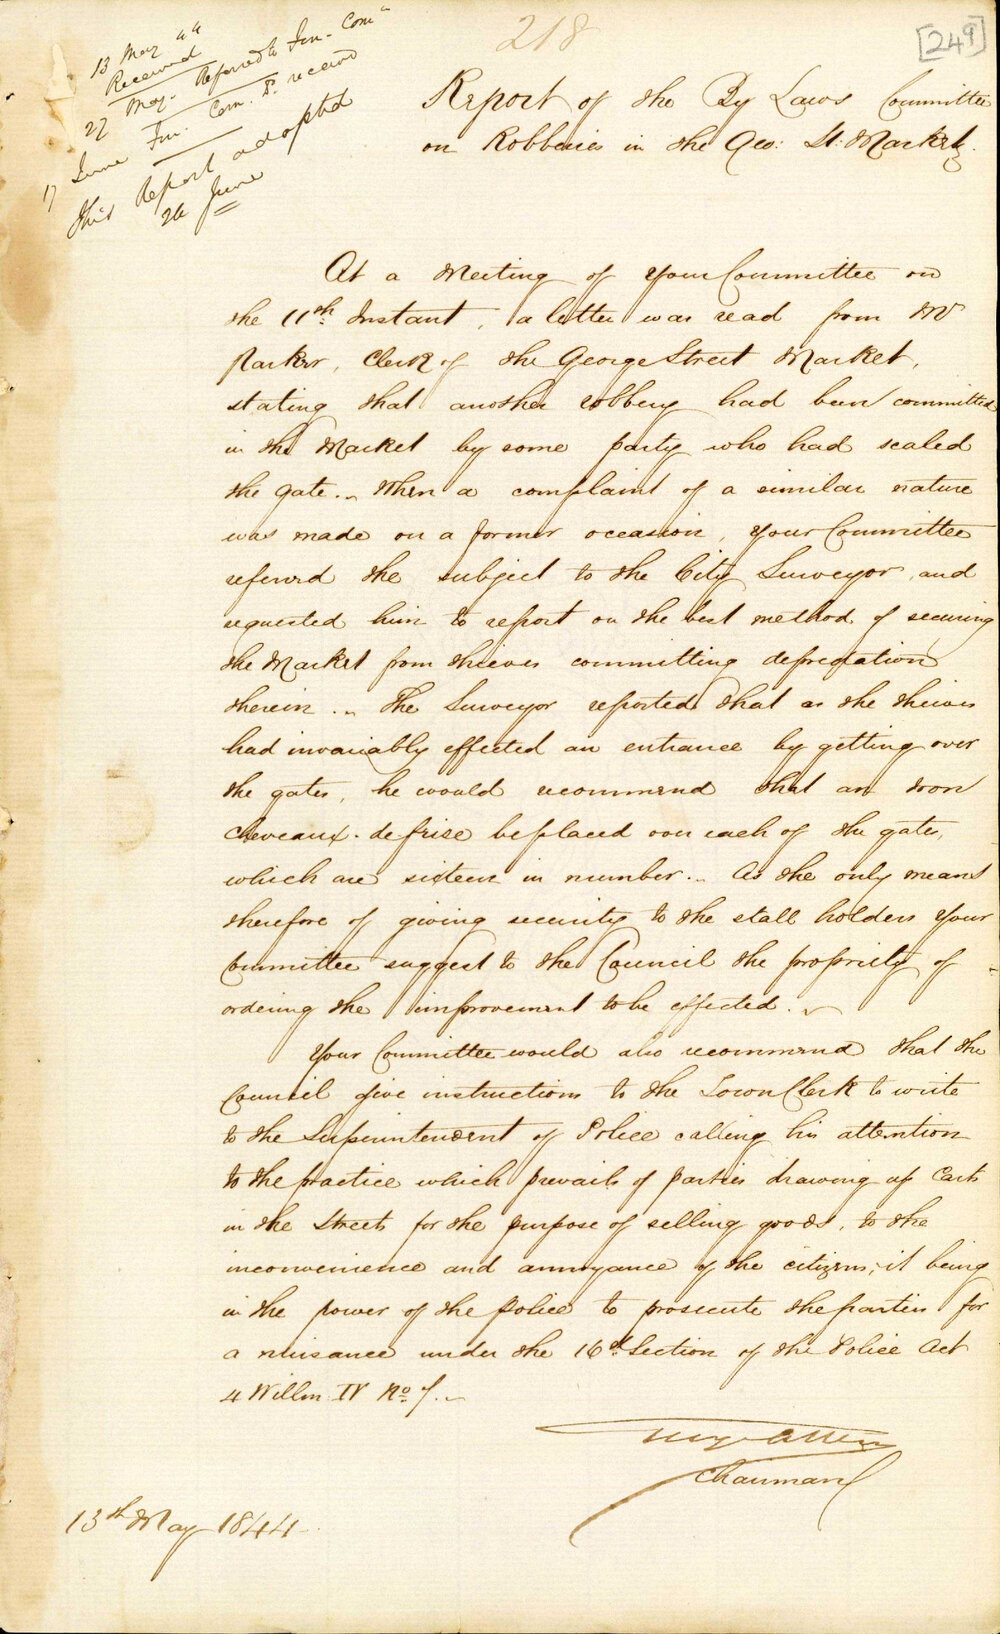 218
[249]
13 May 44
Received
27 May. Referred to Fin. Com^ee
17 June Fin. Com. P. received
This Report adopted
24 June
Report of the By Laws Committee
on Robberies in the Geo: St: Market.
At a Meeting of Your Committee on
the 11th Instant, a letter was read from Mr
Parker, Clerk of the George Street Market,
stating that another robbery had been committed
in the Market by some party who had scaled
the gate.. When a complaint of a similar nature
was made on a former occasion, Your Committee
referred the subject to the City Surveyor, and
requested him to report on the best method of securing
the Market from thieves committing depredation
therein.. The Surveyor reported that as the thieves
had invariably effected an entrance by getting over
the gates, he would recommend that an iron
cheveaux-defrise be placed on each of the gates,
which are sixteen in number.. As the only means
therefore of giving security to the stall holders Your
Committee suggest to the Council the propriety of
ordering the improvement to be effected..
Your Committee would also recommend that the
Council give instructions to the Town Clerk to write
to the Superintendent of Police calling his attention
to the practice which prevails of parties drawing up Carts
in the Streets for the purpose of selling goods, to the
inconvenience and annoyance of the citizens; it being
in the power of the police to prosecute the parties for
a nuisance under the 16th Section of the Police Act
4 Willm IV No 7.
Chairman
13th May 1844